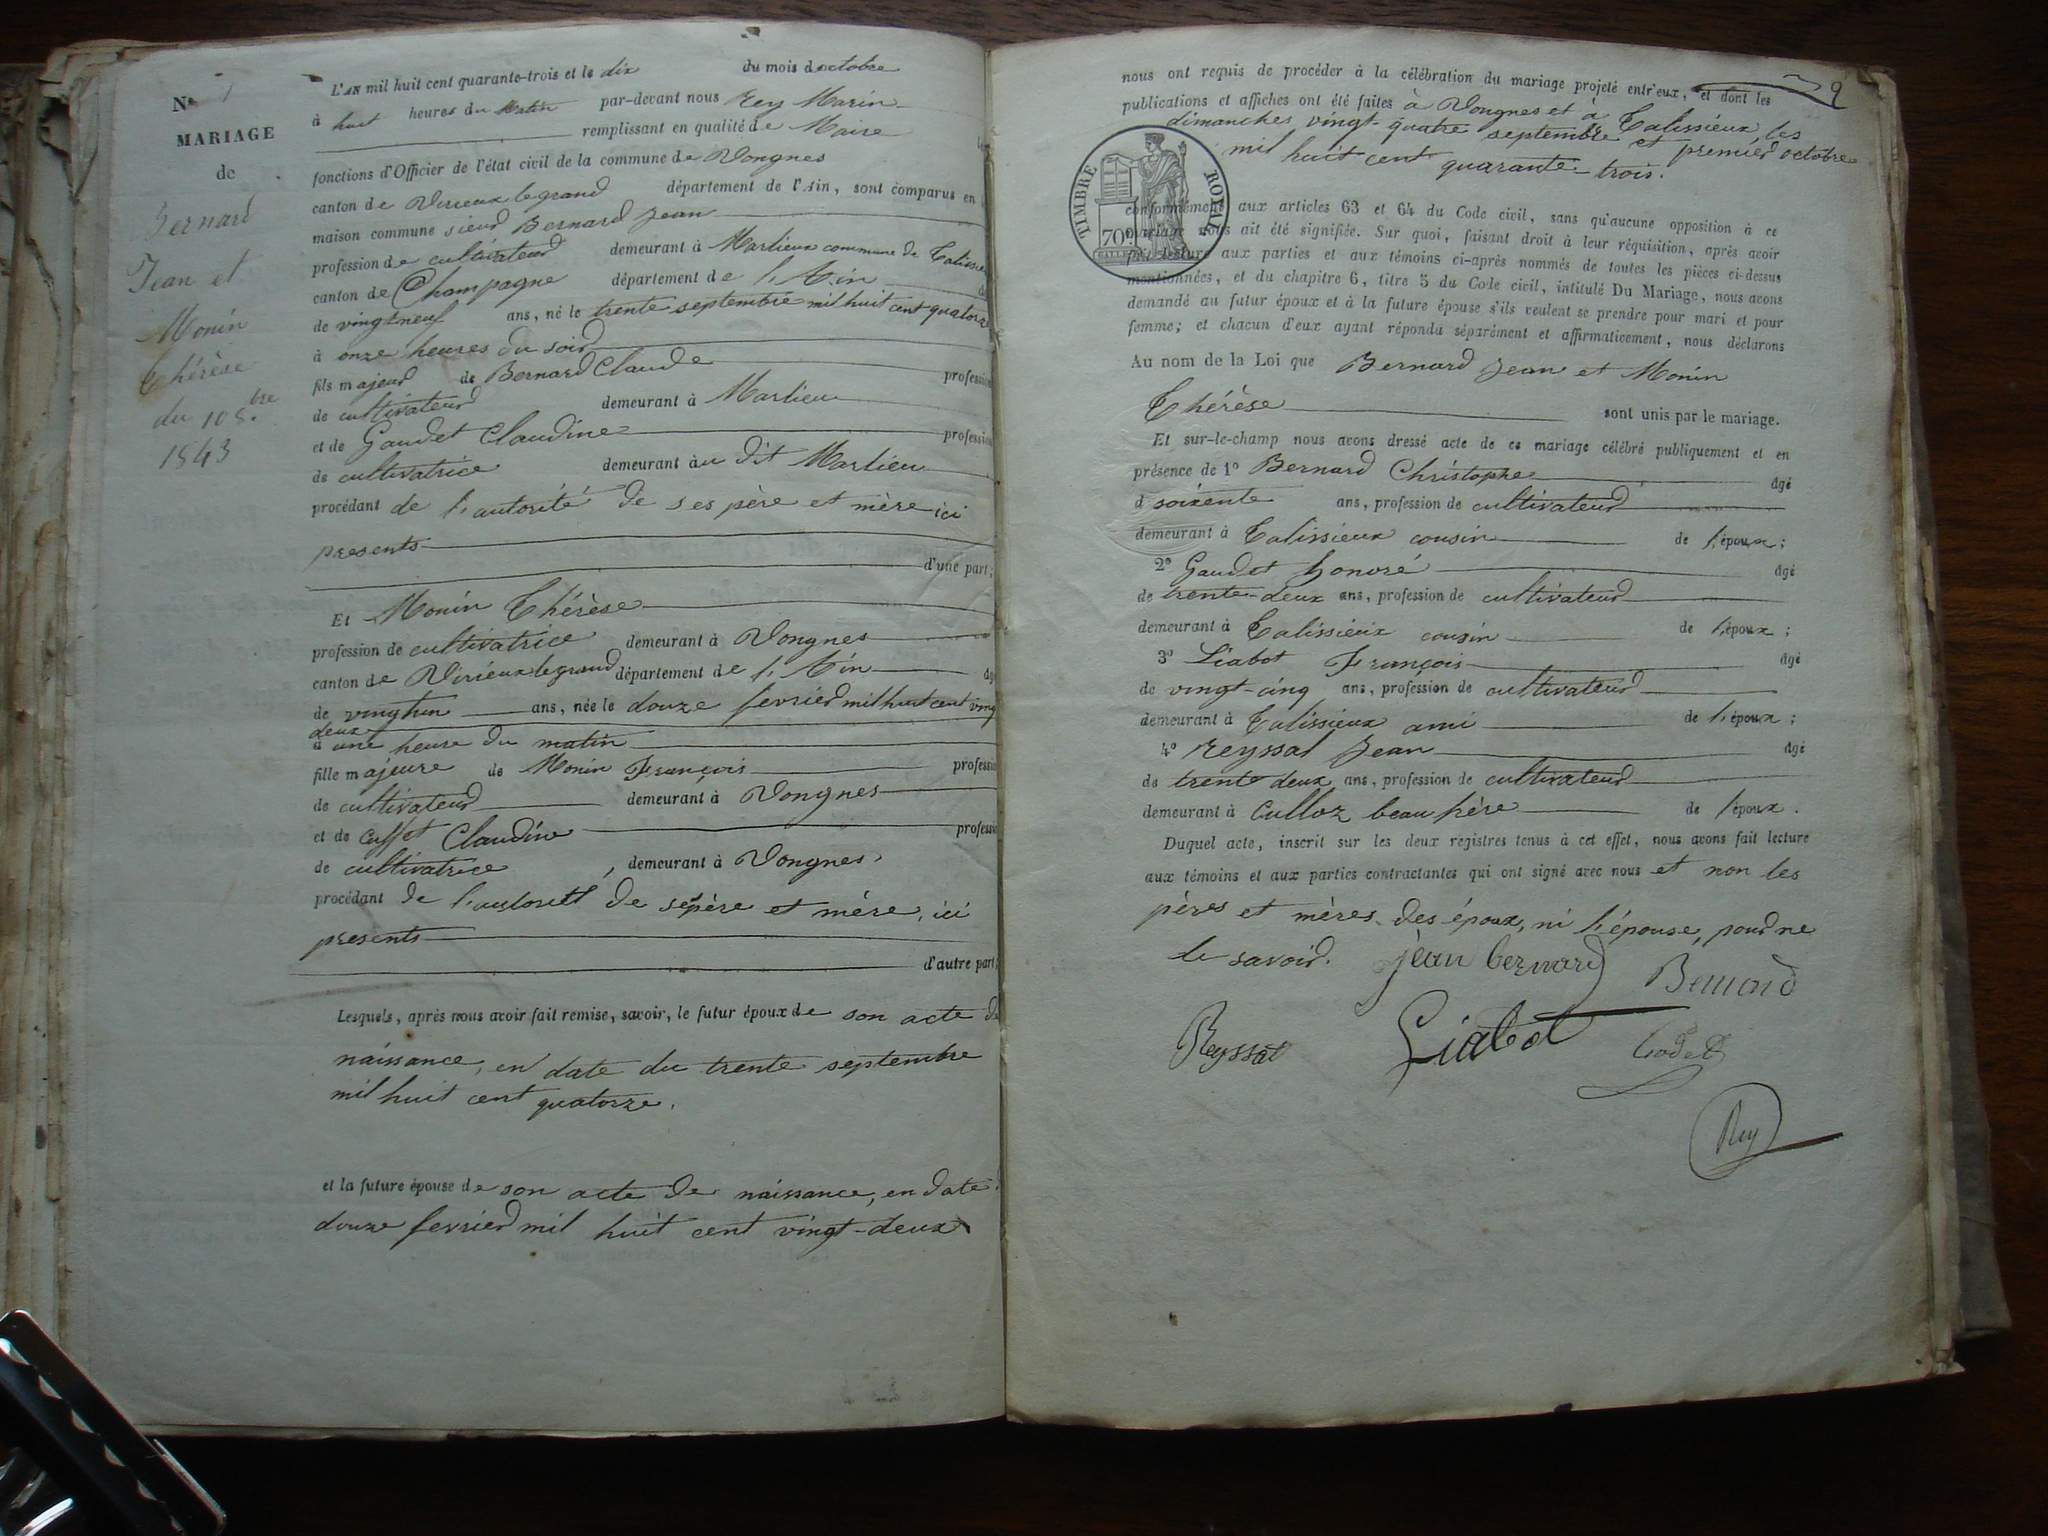 N° 1
MARIAGE
de
Bernard
Jean et
Monin
Thérèse
du 10 8.bre
1843
L'AN mil huit cent quarante-trois et le dix du mois d'octobre
à huit heures du matin par-devant nous Rey Marin
remplissant en qualité de Maire
fonctions d'Officier de l'état civil de la commune de Vongnes
canton de Virieux legrand département de l'Ain, sont comparus en
maison commune sieur Bernard Jean
profession de cultivateur demeurant à Marlieux commune de Talissieu
canton de Champagne département de l'Ain
de vingt neuf ans, né le trente septembre mil huit cent quatorze
à onze heures du soir
fils majeur de Bernard Claude profession
de cultivateur demeurant à Marlieu
et de Gaudet Claudine profession
de cultivatrice demeurant àu dit Marlieu
procédant de l'autorité de ses père et mère ici
presents
d'une part;
Et Monin Thérèse
profession de cultivatrice demeurant à Vongnes
canton de Virieux legrand département de l'Ain âgé
de vingtun ans, née le douze fevrier mil huit cent vingt
deux
à une heure du matin
fille majeure de Monin François profession
de cultivateur demeurant à Vongnes
et de Cuffet Claudine profession
de cultivatrice, demeurant à Vongnes,
procédant de l'autorité de se père et mère, ici
presents
d'autre part;
Lesquels, après nous avoir fait remise, savoir, le futur époux de son acte de
naissance, en date du trente septembre
mil huit cent quatorze.
et la future épouse de son acte de naissance, en date
douze fevrier mil huit cent vingt-deux
9
nous ont requis de procéder à la célébration du mariage projeté entr'eux, et dont les
publications et affiches ont été faites à Vongnes et à Talissieux, les
dimanches vingt-quatre septembre et premier octobre
mil huit cent quarante-trois.
TIMBRE ROYAL
70c
conformément aux articles 63 et 64 du Code civil, sans qu'aucune opposition à ce
mariage nous ait été signifiée. Sur quoi, faisant droit à leur réquisition, après avoir
fait lecture aux parties et aux témoins ci-après nommés de toutes les pièces ci-dessus
mentionnées, et du chapitre 6, titre 5 du Code civil, intitulé Du Mariage, nous avons
demandé au futur époux et à la future épouse s'ils veulent se prendre pour mari et pour
femme; et chacun d'eux ayant répondu séparément et affirmativement, nous déclarons
Au nom de la Loi que Bernard Jean et Monin
Thérèse sont unis par le mariage.
Et sur-le-champ nous avons dressé acte de ce mariage célébré publiquement et en
présence de 1° Bernard Christophe âgé
d soixente ans, profession de cultivateur
demeurant à Talissieux cousin de l'époux;
2° Gaudet honoré âgé
de trente-deux ans, profession de cultivateur
demeurant à Talissieux cousin de l'époux;
3° Liabot François âgé
de vingt-cinq ans, profession de cultivateur
demeurant à Talissieux ami de l'époux;
4° Reyssat Jean âgé
de trente deux ans, profession de cultivateur
demeurant à Culloz beau frère de l'époux.
Duquel acte, inscrit sur les deux registres tenus à cet effet, nous avons fait lecture
aux témoins et aux parties contractantes qui ont signé avec nous et non les
pères et mères des époux, ni l'épouse, pour ne
le savoir. jean bernard Bernard
Reyssat Liabot Godet
Rey